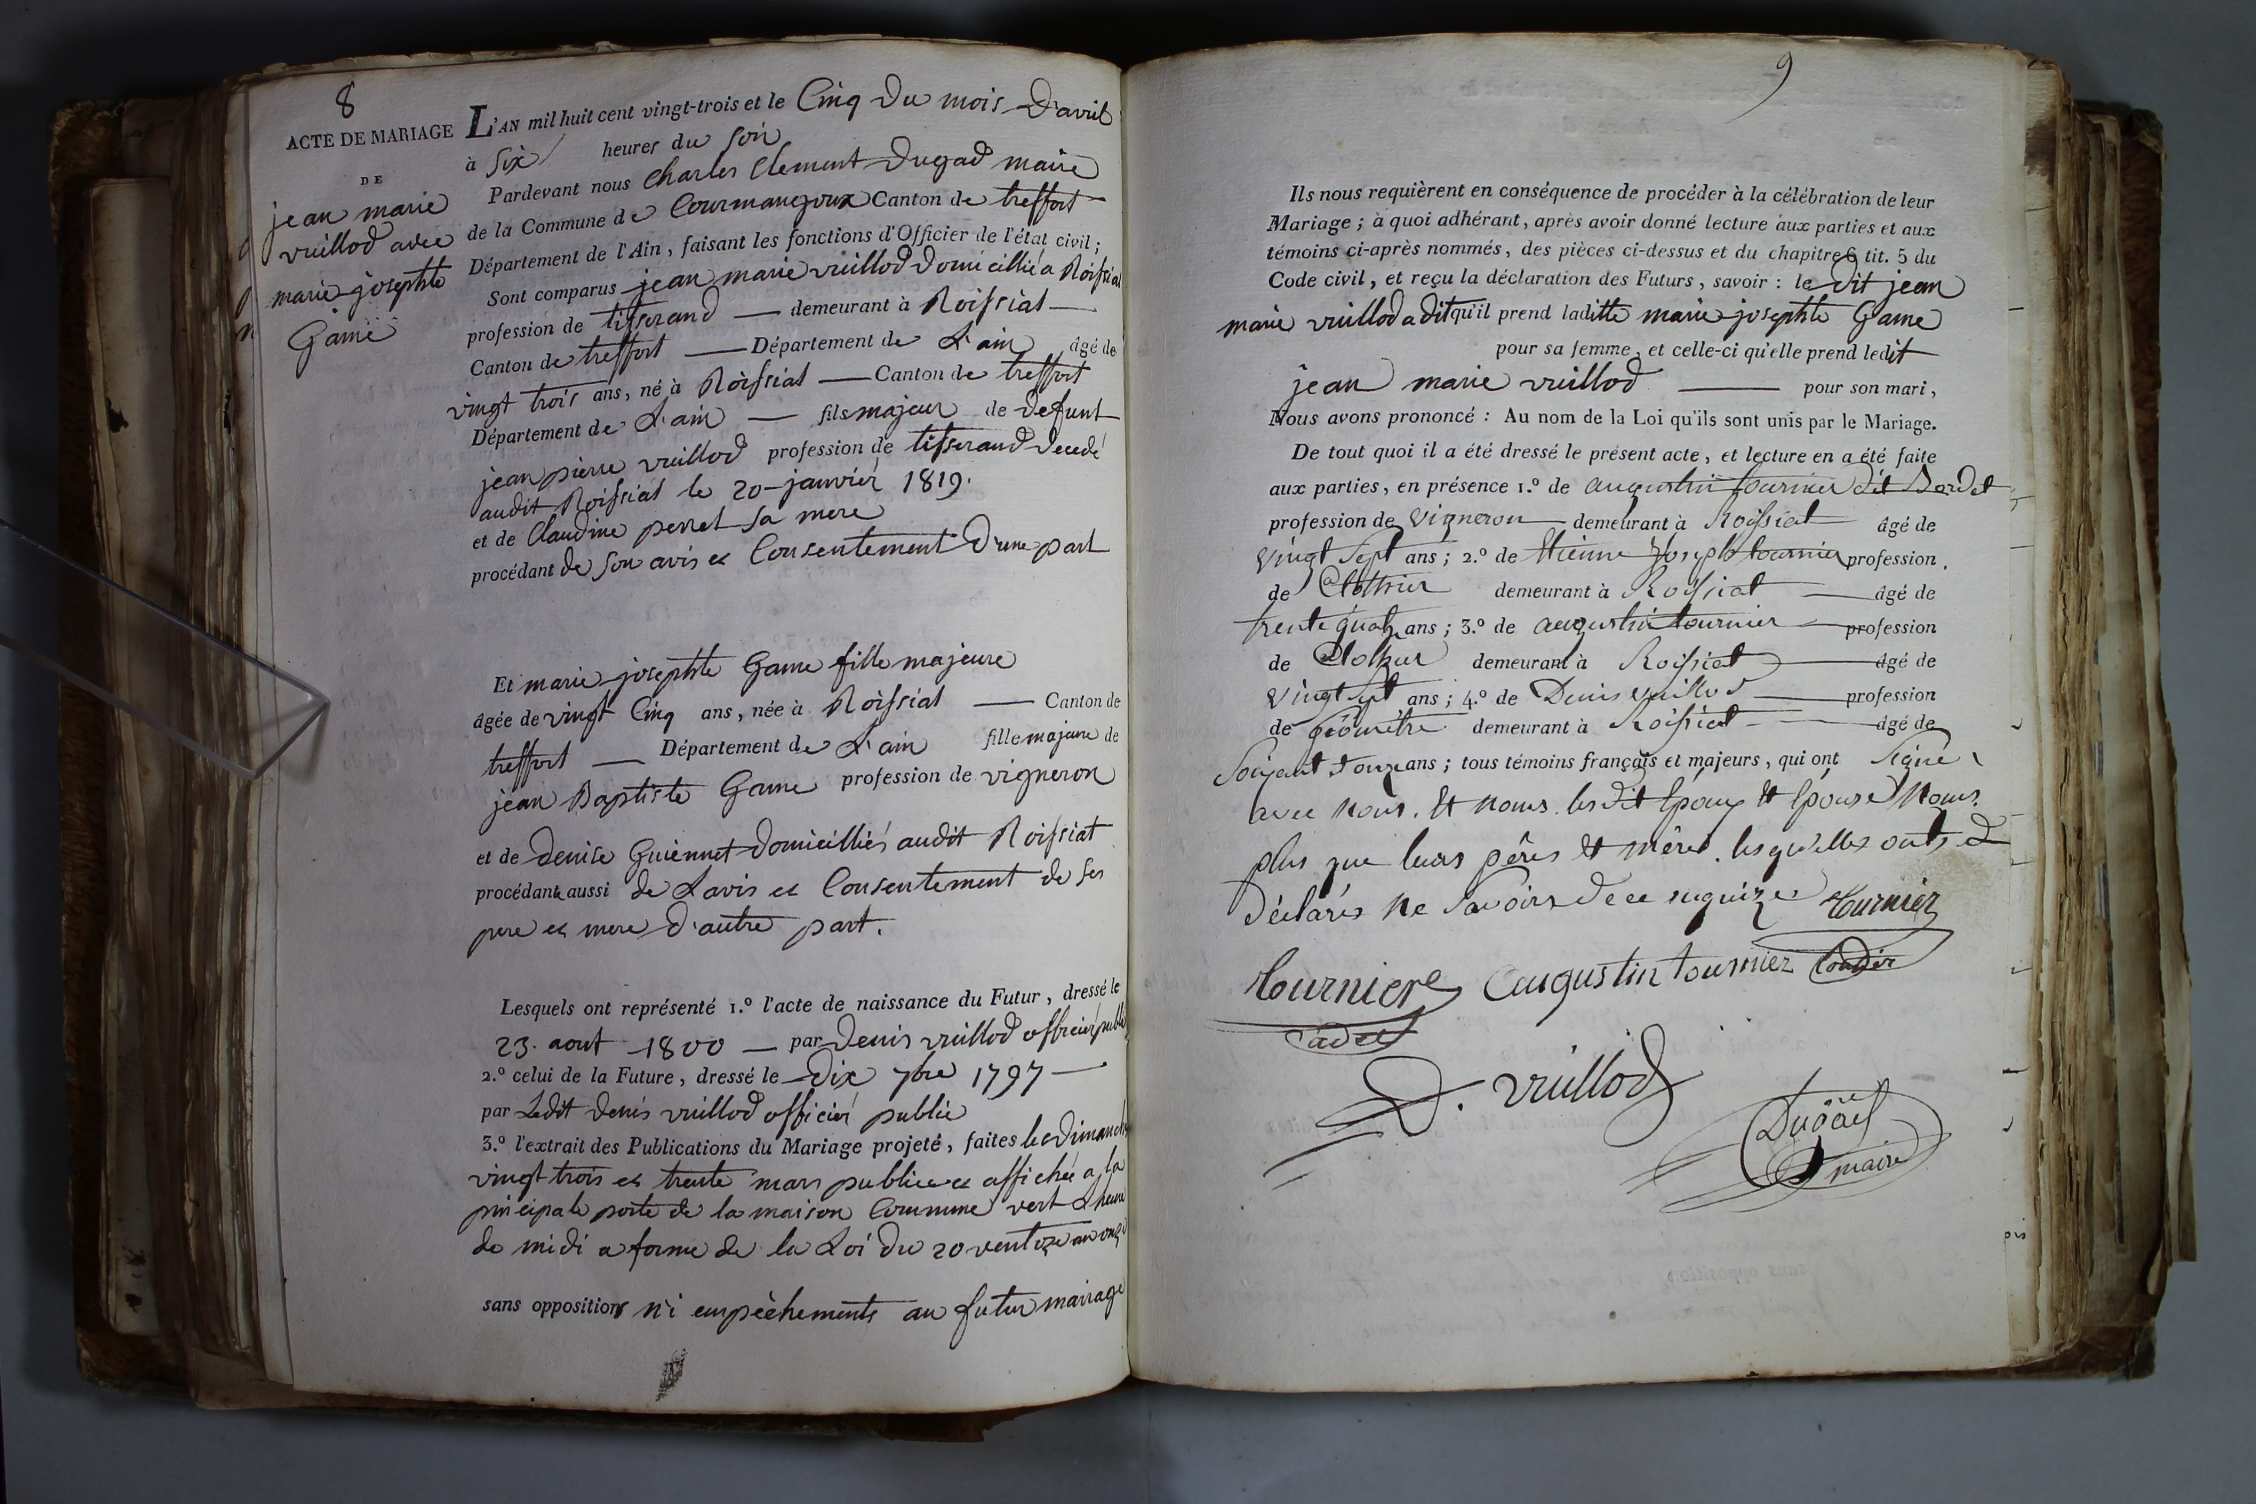 8
ACTE DE MARIAGE
DE
jean marie
vuillod avec
marie josephte
Game
L'AN mil huit cent vingt-trois et le Cinq du mois D'avril
à Six heures du soir
Pardevant nous Charles Clement Dugad maire
de la Commune de Courmangoux Canton de treffort
Département de l'Ain, faisant les fonctions d'Officier de l'état civil;
Sont comparus jean marie vuillod domicillié a Roissiat
profession de tisserand — demeurant à Roissiat —
Canton de treffort — Département de L'ain âgé de
vingt trois ans, né à Roissiat — Canton de treffort
Département de L'ain — fils majeur de defunt
jean pierre vuillod profession de tisserand decedé
audit Roissiat le 20 janvier 1819.
et de Claudine perret sa mere
procédant de son avis et Consentement D'une part
Et marie josephte Game fille majeure
âgée de vingt Cinq ans, née à Roissiat — Canton de
treffort — Département de L'ain fille majeure de
jean Baptiste Game profession de vigneron
et de denise Guiennet domicilliés audit Roissiat
procédante aussi de Lavis et Consentement de ses
pere et mere D'autre part.
Lesquels ont représenté 1.º l'acte de naissance du Futur, dressé le
23. aout 1800 — par Denis vuillod officier public
2.º celui de la Future, dressé le Dix 7bre 1797 —
par Ledit Denis vuillod officier public
3.º l'extrait des Publications du Mariage projeté, faites les Dimanches
vingt trois et trente mars publiee et affichée a la
principale porte de la maison Commune vert Lheure
de midi a forme de la Loi du 20 ventoze an onze
sans oppositions ni empêchements au futur mariage
9
Ils nous requièrent en conséquence de procéder à la célébration de leur
Mariage; à quoi adhérant, après avoir donné lecture aux parties et aux
témoins ci-après nommés, des pièces ci-dessus et du chapitre 6 tit. 5 du
Code civil, et reçu la déclaration des Futurs, savoir: le dit jean
marie vuillod a dit qu'il prend laditte marie josephte Game
pour sa femme, et celle-ci qu'elle prend ledit
jean marie vuillod — pour son mari,
Nous avons prononcé: Au nom de la Loi qu'ils sont unis par le Mariage.
De tout quoi il a été dressé le présent acte, et lecture en a été faite
aux parties, en présence 1.º de augustin tournier dit Bordet
profession de Vigneron demeurant à Roissiat âgé de
vingt sept ans; 2.º de Etienne Joseph tournier profession
de demeurant à Roissiat — âgé de
trente quatre ans; 3.º de augustin tournier — profession
de demeurant à Roissiat — âgé de
vingt sept ans; 4.º de Denis vuillod — profession
de géomètre demeurant à Roissiat — âgé de
Soixant Douze ans; tous témoins français et majeurs, qui ont signé
avec nous. Et nomes les dit Epoux Et Epouse Nomes
plus que leurs pères Et mère. lesquelles onts
déclarés Ne savoirs de ce requize Tournier
Tourniere augustin tournier
Cadet
D. vuillod
Dugad
maire